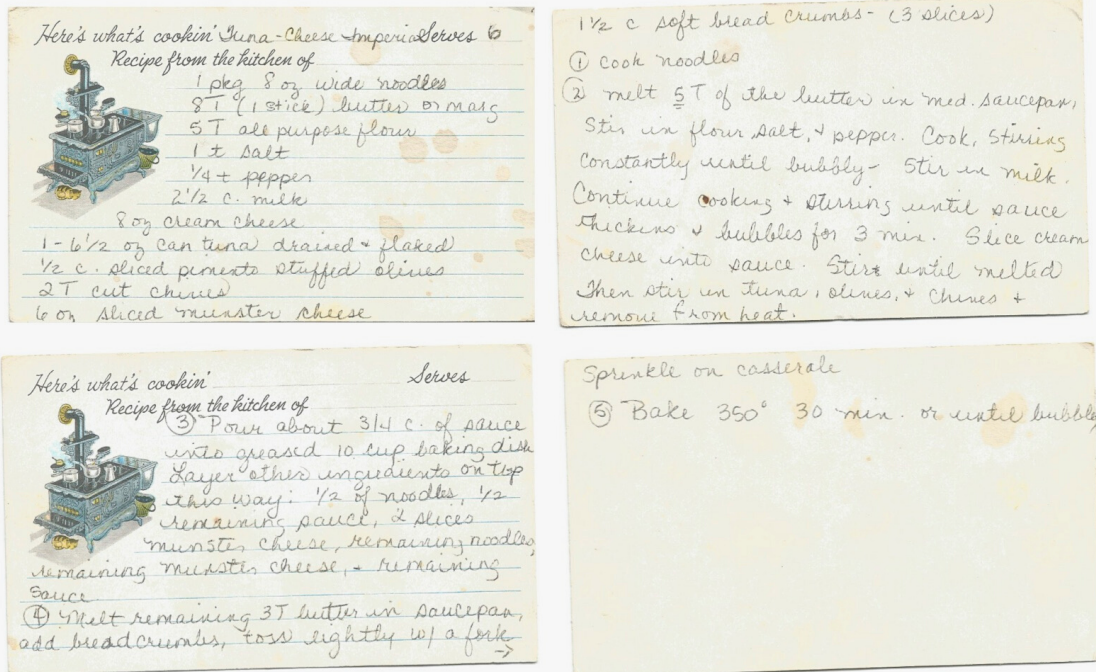 Here's what's cookin' Tuna-Cheese Imperial Serves 6
Recipe from the kitchen of
1 pkg 8 oz wide noodles
8T (1 stick) butter or marg
5 T all purpose flour
1 t salt
1/4 t pepper
2 1/2 c. milk
8 oz cream cheese
1 - 6 1/2 oz can tuna drained & flaked
1/2 c. sliced pimento stuffed olives
2 T cut chives
6 oz sliced munster cheese
1 1/2 c soft bread crumbs - (3 slices)
① Cook noodles
② melt 5 T of the butter in med. saucepan,
Stir in flour salt, & pepper. Cook, stirring
constantly until bubbly - Stir in milk.
Continue cooking & stirring until sauce
thickins & bubbles for 3 min. Slice cream
cheese into sauce. Stir until melted
Then stir in tuna, olives, & chives &
remove from heat.
Here's what's cookin' Serves
Recipe from the kitchen of
③ Pour about 3/4 c. of sauce
into greased 10 cup baking dish
Layer other ingredients on top
this way: 1/2 of noodles, 1/2
remaining sauce, 2 slices
munster cheese, remaining noodles,
remaining munster cheese, & remaining
sauce
④ Melt remaining 3T butter in saucepan,
add breadcrumbs, toss lightly w/ a fork
→
Sprinkle on casserale
⑤ Bake 350° 30 min or until bubbly